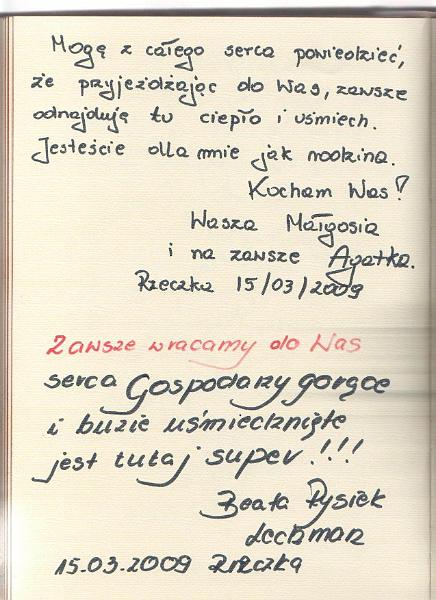 Mogę z całego serca powiedzieć,
że przyjeżdżając do Was, zawsze
odnajduję tu ciepło i uśmiech.
Jesteście dla mnie jak rodzina.
Kocham Was!
Wasza Małgosia
i na zawsze Agatka.
Rzeczka 15/03/2009
Zawsze wracamy do Was
serca Gospodarzy gorące
i buzie uśmiechnięte
jest tutaj super!!!
Beata Rysiek
Lechman
15.03.2009 Rzeczka